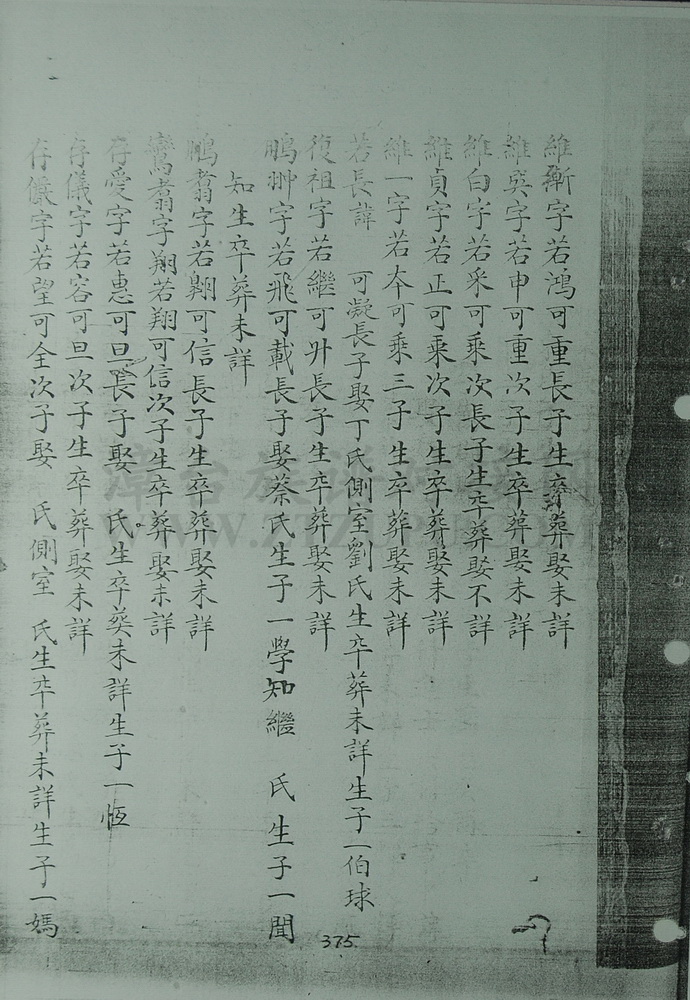 維漸字若鴻可重長子生卒葬娶未詳
維奭字若申可重次子生卒葬娶未詳
維白字若采可乘次長子生卒葬娶不詳
維貞字若正可乘次子生卒葬娶未詳
維一字若本可乘三子生卒葬娶未詳
若長諱 可凝長子娶丁氏側室劉氏生卒葬未詳生子一伯球
復祖字若繼可升長子生卒葬娶未詳
鵬翀字若飛可載長子娶蔡氏生子一學知繼 氏生子一聞
知生卒葬未詳
鵬翥字若翺可信長子生卒葬娶未詳
鸞翥字翔若翔可信次子生卒葬娶未詳
存愛字若惠可旦長子娶 氏生卒葵未詳生子一恆
存儀字若容可旦次子生卒葬娶未詳
存儼字若望可全次子娶 氏側室 氏生卒葬未詳生子一嫣
375